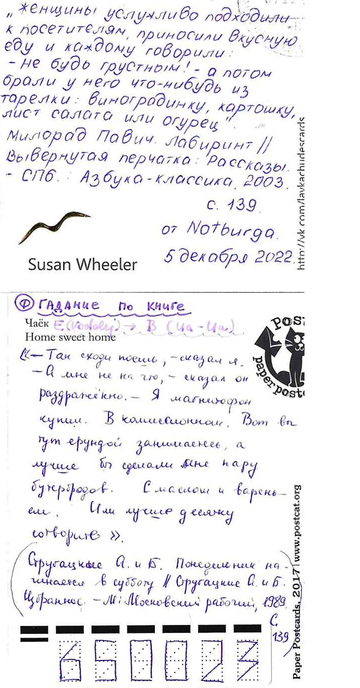 „Женщины услужливо подходили
к посетителям, приносили вкусную
еду и каждому говорили:
- Не будь грустным! - а потом
брали у него что-нибудь из
тарелки: виноградинку, картошку,
лист салата или огурец".
Милорад Павич. Лабиринт //
Вывернутая перчатка: Рассказы.
- СПб. : Азбука-классика, 2003.
с. 139.
от Notburga.
5 декабря 2022.
Susan Wheeler
http://vk.com/lavkachudescards
Ф Гадание по книге
Чаёк
Home sweet home
«— Так сходи поешь, - сказал я.
- А мне не на что, - сказал он
раздражённо. - Я магнитофон
купил. В комиссионном. Вот вы
тут ерундой занимаетесь, а
лучше бы сделали мне пару
бутербродов. С маслом и варень-
ем. Или лучше десятку
сотворите».
Стругацкие А. и Б. Понедельник на-
чинается в субботу // Стругацкие А. и Б.
Избранное. - М: Московский рабочий, 1989.
С.
139
paper postcards
Paper Postcards, 2017 | www.postcat.org